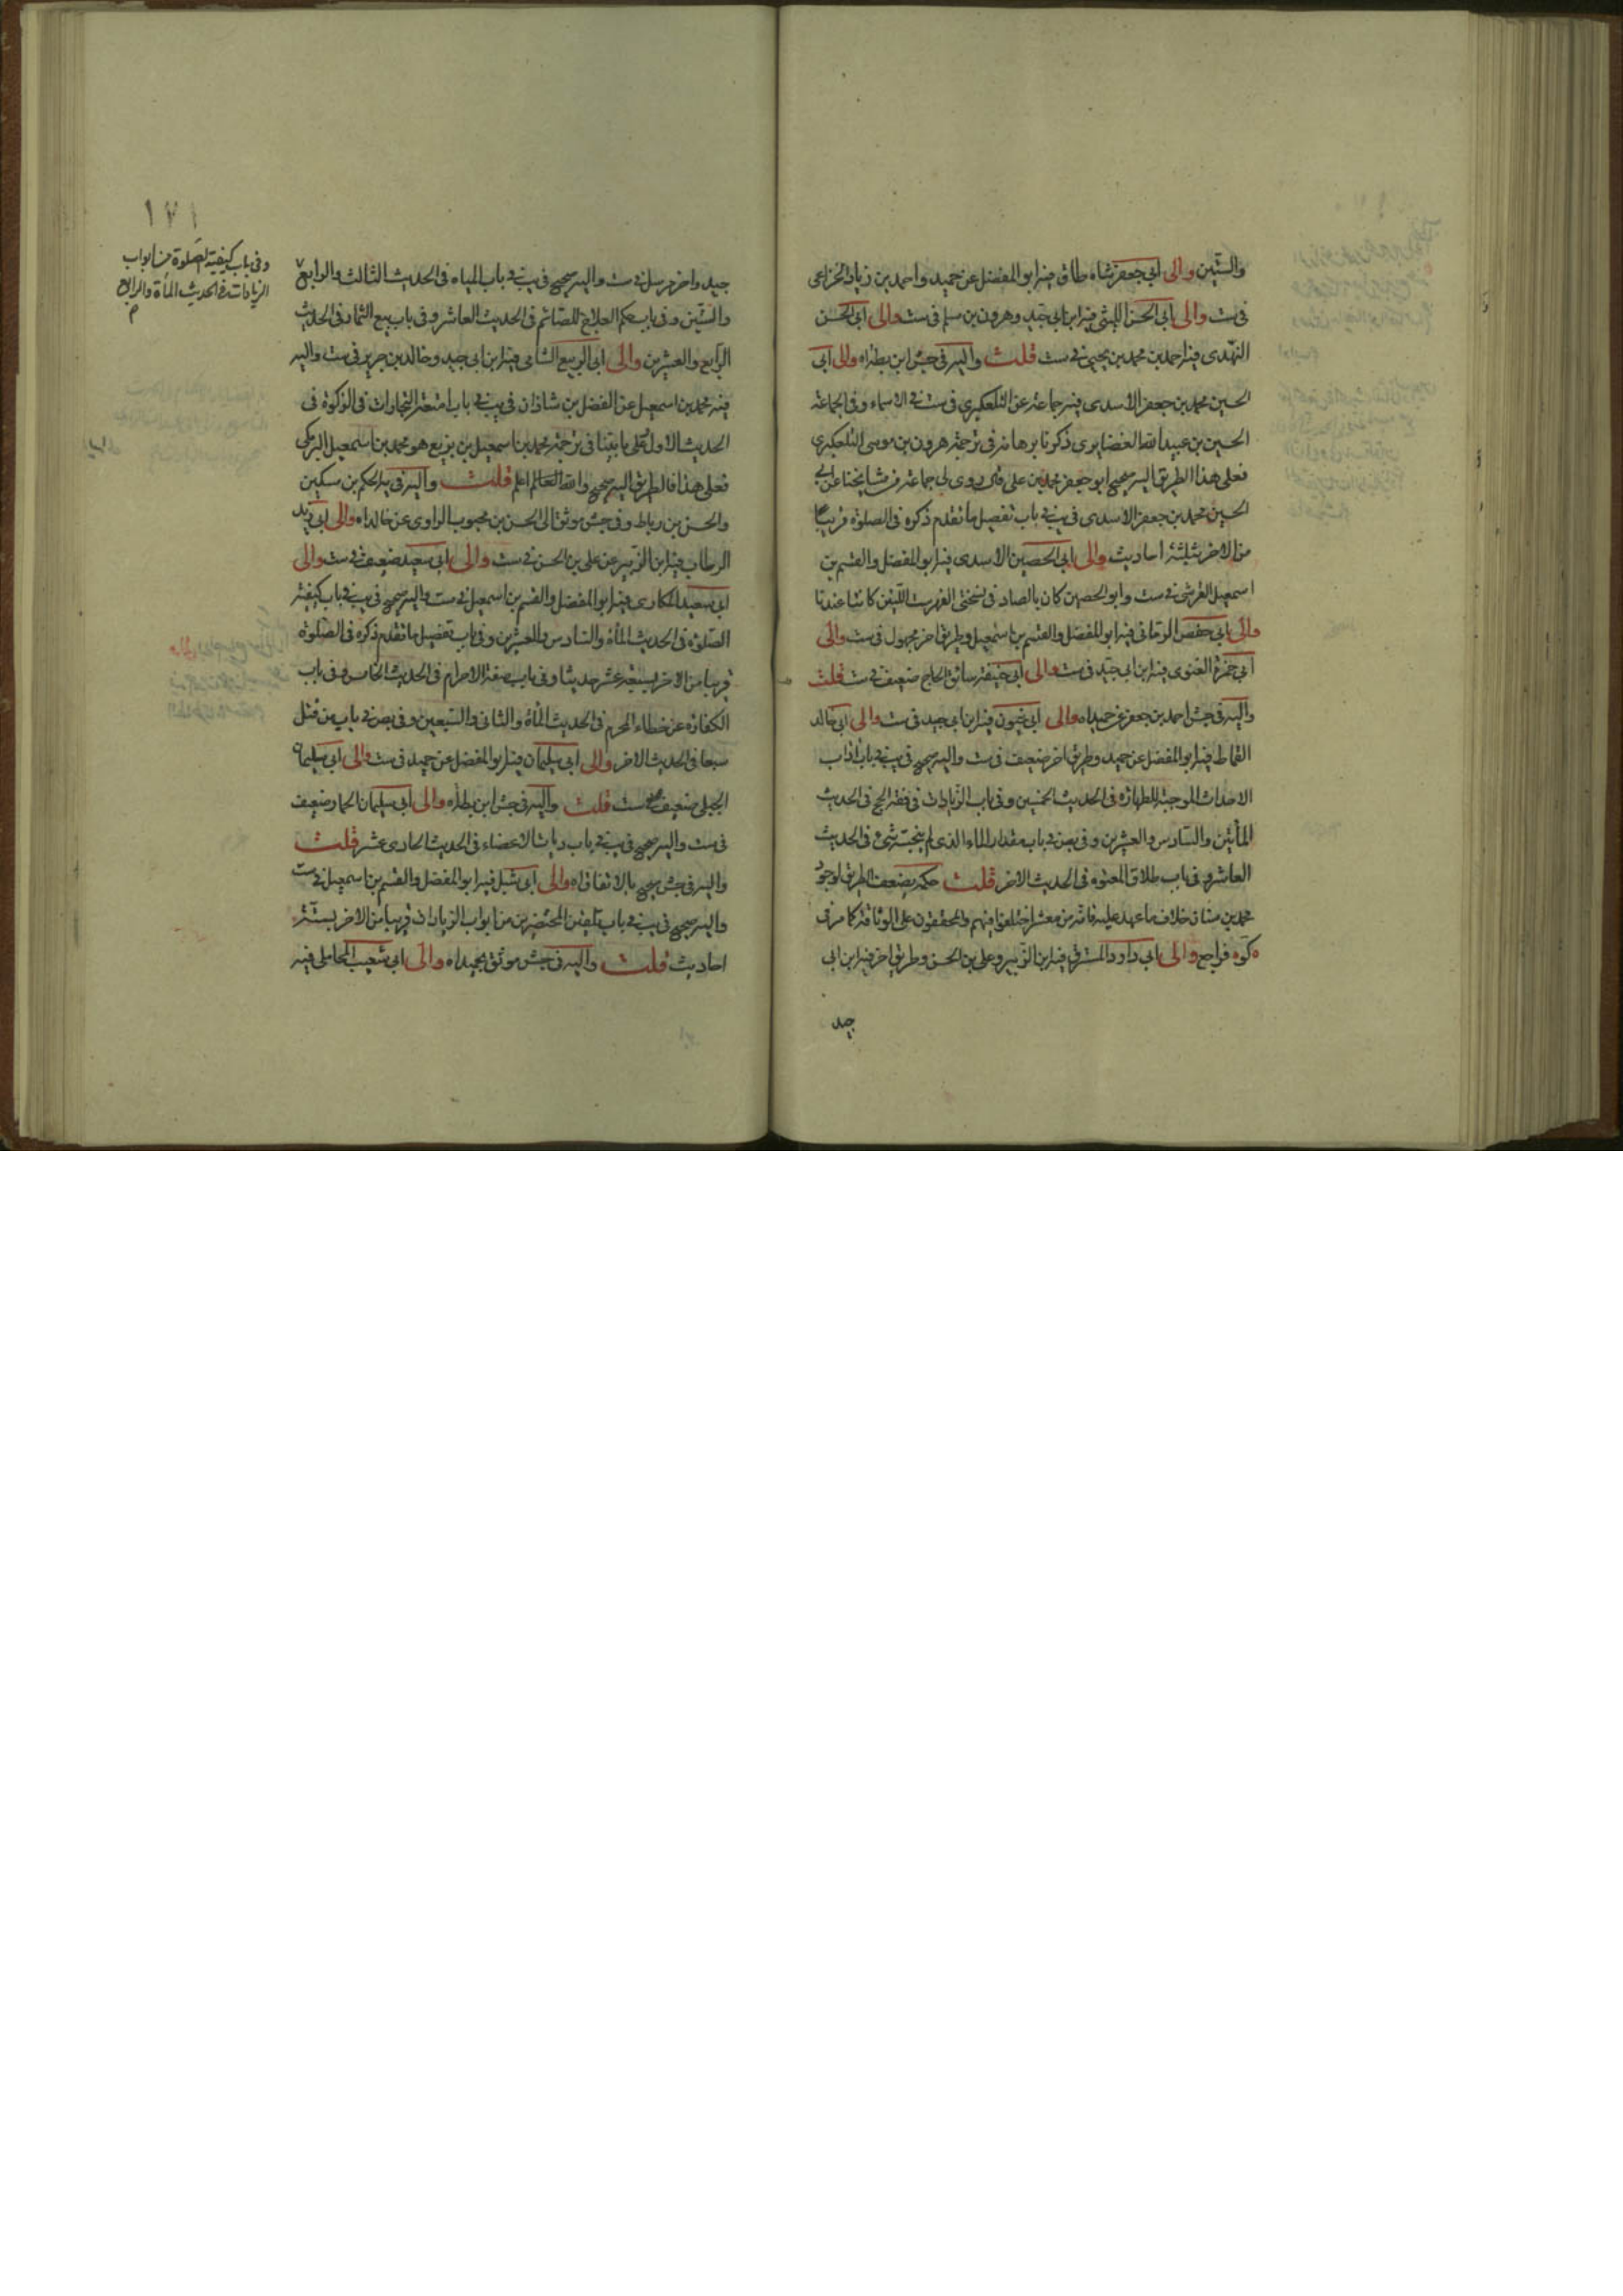 والستين والى ابي جعفر شاه طاق فيه ابو المفضل عن حميد واحمد بن زياد الخزاعى
فى ست والى ابي الحسن الليثى فيه ابن ابي جيد وهرون بن مسلم فى ست والى ابي الحسن
النهدى فيه احمد بن محمد بن يحيى فى ست قلت واليه فى جش ابن بطة اه والى ابي
الحسين محمد بن جعفر الاسدى فيه جماعة عن التلعكبري فى ست فى الاسماء وفى الجماعة
الحسين بن عبيد الله الغضايرى ذكرنا برهانه فى ترجمة هرون بن موسى التلعكبري
فعلى هذا الطريق اليه صحيح ابو جعفر محمد بن على قال روى لى جماعة من مشايخنا عن ابي
الحسين محمد بن جعفر الاسدى فى يب فى باب تفصيل ما تقدم ذكره فى الصلوة قريبا
من الاخر بثلثة احاديث والى ابي الحصين الاسدى فيه ابو المفضل والقسم بن
اسمعيل القرشى فى ست وابو الحصين كان بالصاد فى نسختى الفهرست اللتين كانتا عندنا
والى ابي حفص الرمانى فيه ابو المفضل والقسم بن اسمعيل وطريق اخر مجهول فى ست والى
ابي حمزة الغنوى فيه ابن ابي جيد فى ست والى ابي حنيفة سائق الحاج ضعيف فى ست قلت
واليه فى جش احمد بن جعفر عن حميد اه والى ابي خيون فيه ابن ابي جيد فى ست والى ابي خالد
القماط فيه ابو المفضل عن حميد وطريق اخر ضعيف فى ست واليه صحيح فى يب فى باب اداب
الاحداث الموجبة للطهارة فى الحديث الخمسين وفى باب الزيادات فى فقه الحج فى الحديث
المأتين والسادس والعشرين وفى بص فى باب مقدار الماء الذى لم ينجسه شئ فى الحديث
العاشر وفى باب طلاق المعتوه فى الحديث الاخر قلت حكمه بضعف الطريق لوجود
محمد بن سنان خلاف ما عهد عليه فانه من معشر اختلفوا فيهم والمحققون على الوثاقة كما مر فى
كوه فراجع والى ابي داود المسترق فيه ابن الزبير وعلى بن الحسن وطريق اخر فيه ابن ابى
جيد
١٧١
جيد واخر مرسل فى ست واليه صحيح فى يب فى باب المياه فى الحديث الثالث والرابع
والستين وفى باب حكم العلاج للصائم فى الحديث العاشر وفى باب بيع الثمار فى الحديث
الرابع والعشرين والى ابي الربيع الشامى فيه ابن ابى جيد وخالد بن جرير فى ست واليه
فيه محمد بن اسمعيل عن الفضل بن شاذان فى يب فى باب امتعة التجارات فى الزكوة فى
الحديث الاول على ما بينا فى ترجمة محمد بن اسمعيل بن بزيع هو محمد بن اسمعيل البرمكى
فعلى هذا فالطريق اليه صحيح والله العالم اعلم قلت واليه فى يد الحكم بن مسكين
والحسن بن رباط وفى جش موثقا الى الحسن بن محبوب الراوى عن خالد اه والى ابي زيد
الرطاب فيه ابن الزبير عن على بن الحسن فى ست والى ابى سعيد ضعيف فى ست والى
ابى سعيد المكارى فيه ابو المفضل والقسم بن اسمعيل فى ست واليه صحيح فى يب فى باب كيفية
الصلوة فى الحديث المأة والسادس والعشرين وفى باب تفصيل ما تقدم ذكره فى الصلوة
قريبا من الاخر بسبعة عشر حديثا وفى باب صفة الاحرام فى الحديث الخامس وفى باب
الكفارة عن خطاء المحرم فى الحديث المأة والثانى والسبعين وفى بص فى باب من قتل
سبعا فى الحديث الاخر والى ابى سليمان فيه ابو المفضل عن حميد فى ست والى ابى سليمان
الجبلى ضعيف فى ست قلت واليه فى جش ابن بطة اه والى ابى سليمان الحمار ضعيف
فى ست واليه صحيح فى يب فى باب ديات الاعضاء فى الحديث الحادى عشر قلت
واليه فى جش صحيح بالاتفاق اه والى ابى شبل فيه ابو المفضل والقسم بن اسمعيل فى ست
واليه صحيح فى يب فى باب تلقين المحتضرين من ابواب الزيادات قريبا من الاخر بستة
احاديث قلت واليه فى جش موثق بحميد اه والى ابى شعيب المحاملى فيه
وفى باب كيفية الصلوة من ابواب
الزيادات فى الحديث المأة والرابع
م